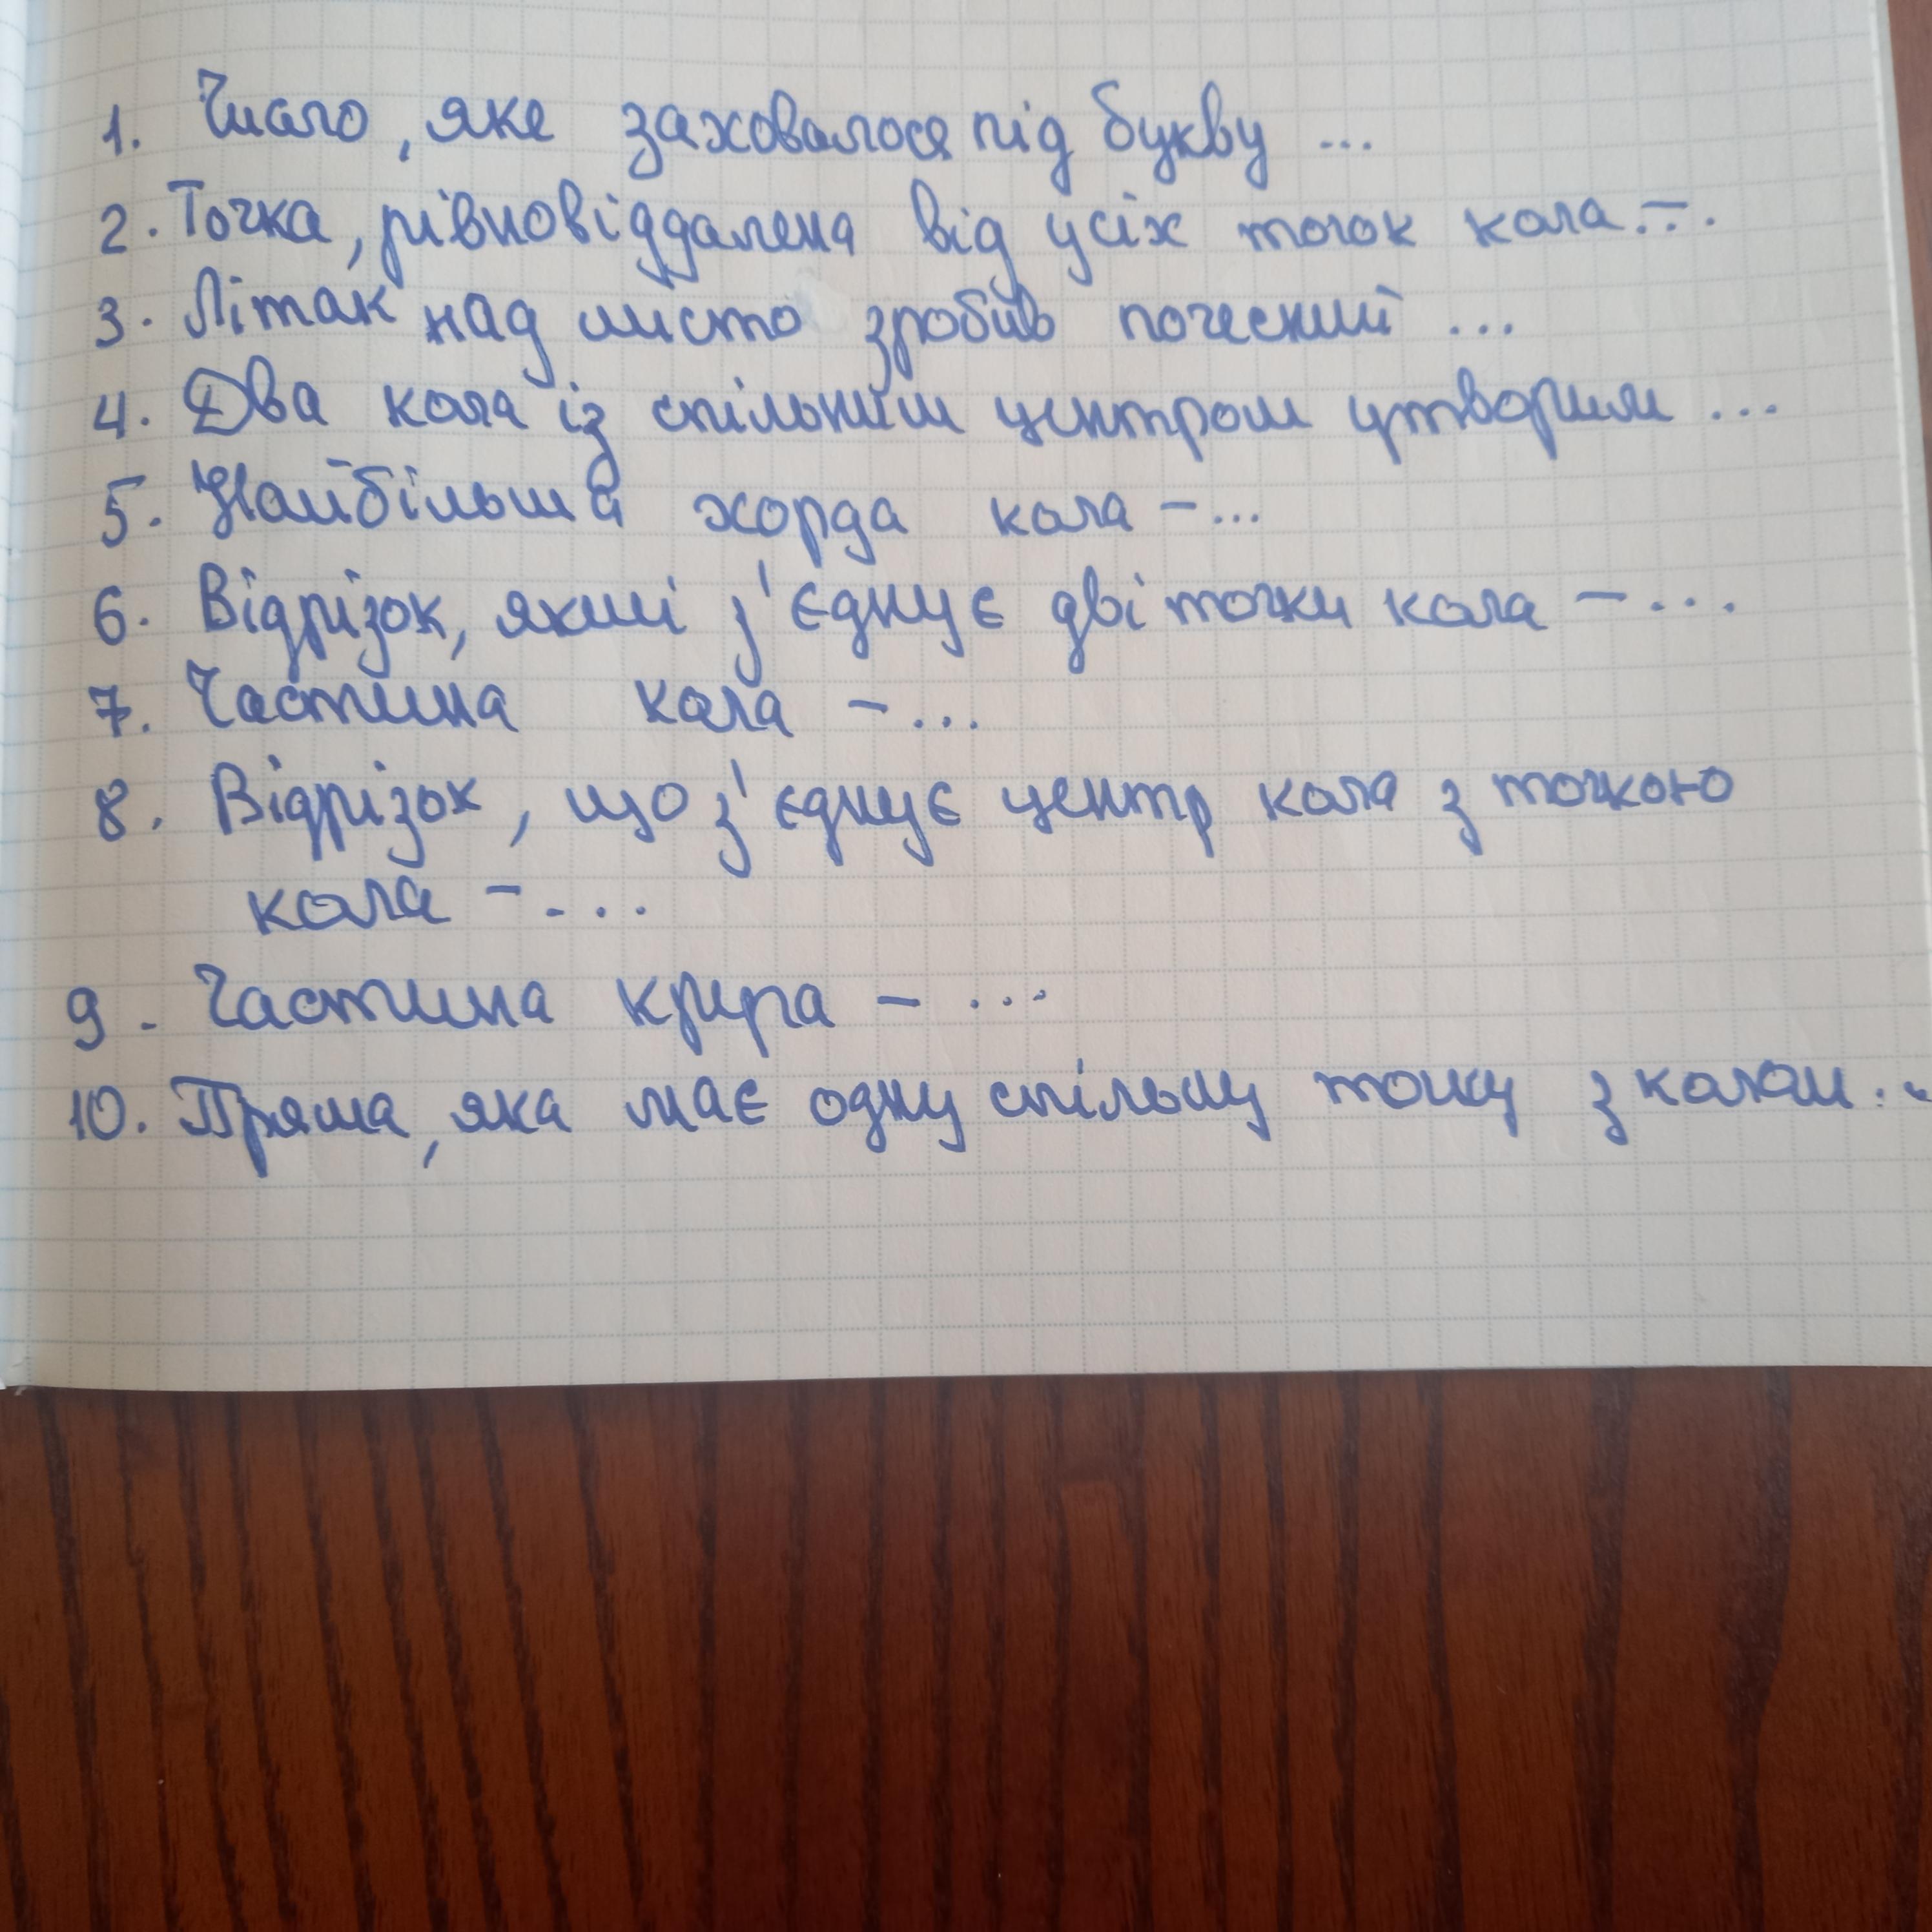 1. Число, яке заховалося під букву ...
2. Точка, рівновіддалена від усіх точок кола - ...
3. Літак над місто зробив почесний ...
4. Два кола із спільним центром утворили ...
5. Найбільша хорда кола - ...
6. Відрізок, який з'єднує дві точки кола - ...
7. Частина кола - ...
8. Відрізок, що з'єднує центр кола з точкою
кола - ...
9. Частина круга - ...
10. Пряма, яка має одну спільну точку з колом ...